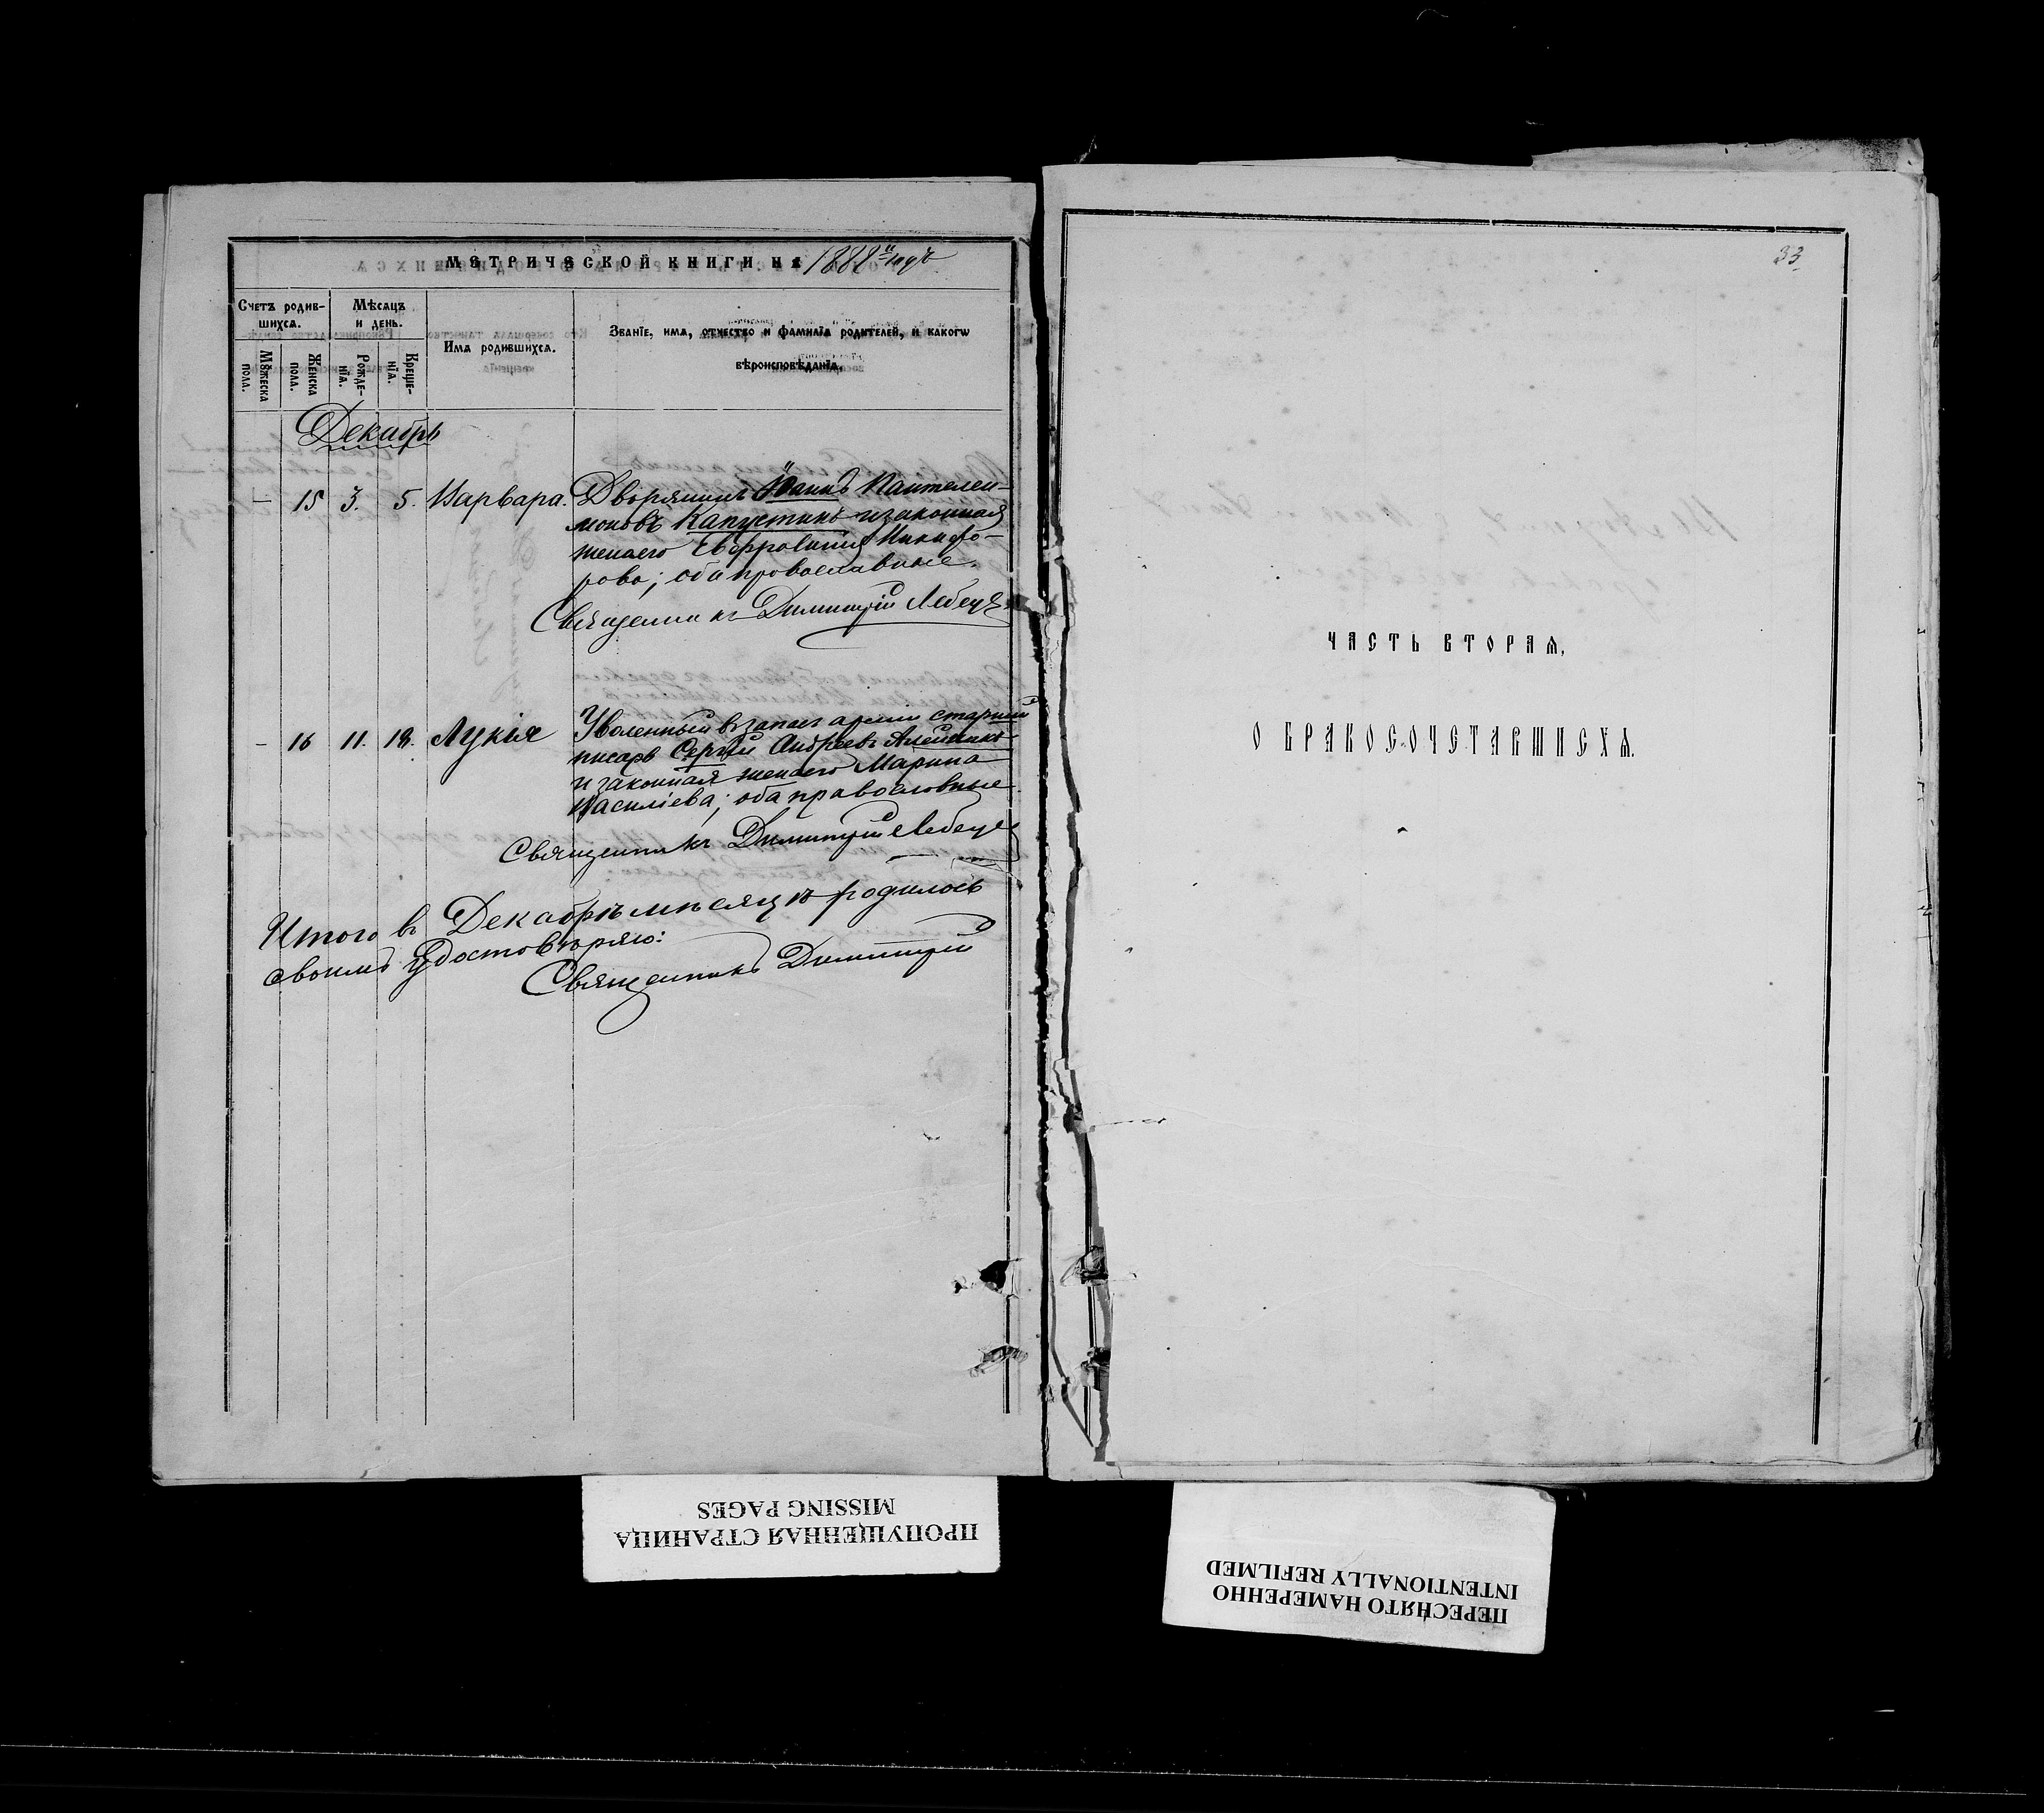 МЕТРИЧЕСКОЙ КНИГИ НА 1888й годъ
Счетъ родив-
шихся.
Мѣсяцъ
и день.
Мꙋжеска
пола.
Женска
пола.
Рожде-
нїя.
Креще-
нїя.
Имя родившихся.
Званїе, имя, отчество и фамилїя родителей, и какогѡ
вѣроисповѣданїя.
Декабрь
— 15 3. 5. Варвара.
Дворянинъ Іоаннъ Пантелеи-
моновъ Капустинъ и законная
жена его Евфросинія Никифо-
рова; оба православные.
Священникъ Димитрій Лебедев
— 16 11. 18. Лукія
Уволенный въ запасъ арміи старшій
писарь Сергій Андреевъ
и законная жена его Марина
Василіева; оба православные
Священникъ Димитрій Лебедев
Итого въ Декабрѣ мѣсяцѣ родилось
своимъ удостовѣряю:
Священникъ Димитрій
33
ЧАСТЬ ВТОРАЯ,
О БРАКОСОЧЕТАВШИХСЯ.
ПРОПУЩЕННАЯ СТРАНИЦА
MISSING PAGES
ПЕРЕСНЯТО НАМЕРЕННО
INTENTIONALLY REFILMED